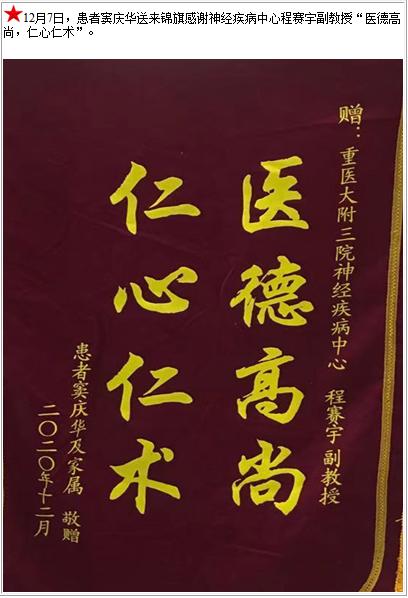 ★12月7日，患者窦庆华送来锦旗感谢神经疾病中心程赛宇副教授“医德高
尚，仁心仁术”。
赠：重医大附三院神经疾病中心 程赛宇 副教授
医德高尚
仁心仁术
患者窦庆华及家属 敬赠
二〇二〇年十二月